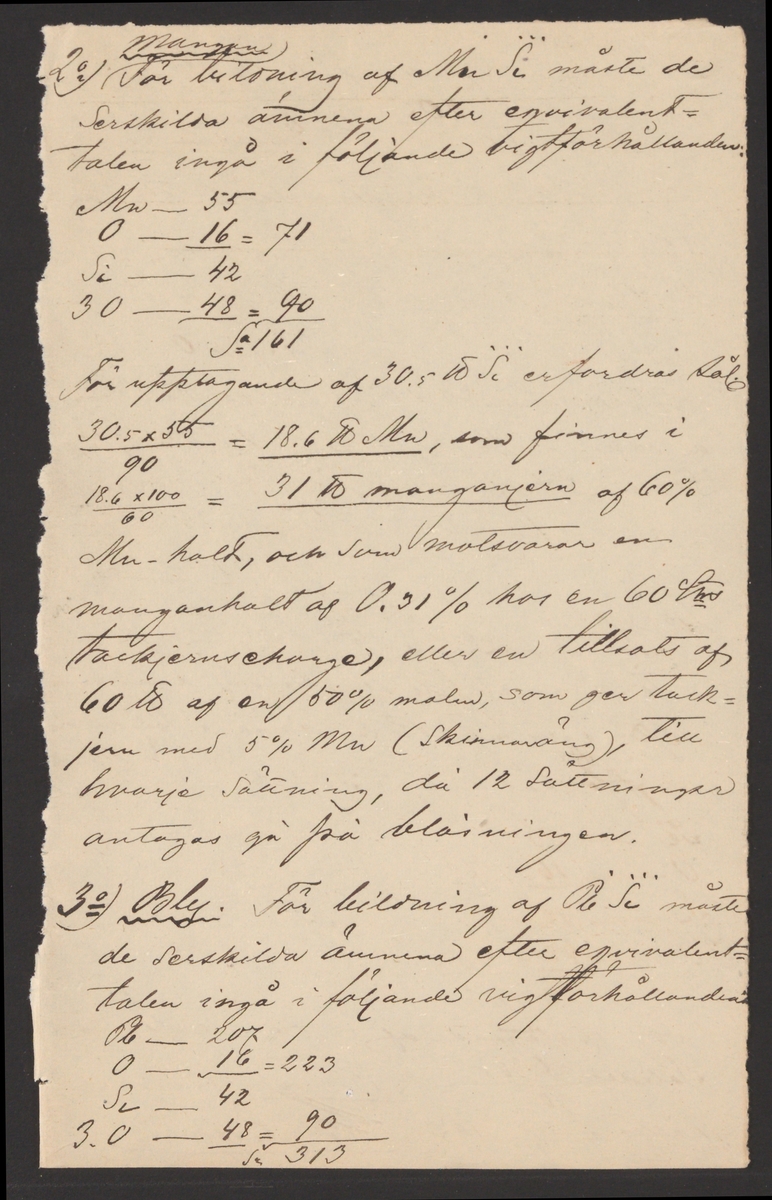 Mangan
2o) För bildning af Mn Si måste de
serskilda ämnena efter eqvivalent=
talen ingå i följande vigtförhållanden:
Mn — 55
O — 16 = 71
Si — 42
3O — 48 = 90
Sa 161
För upptagande af 30.5 ℔ Si erfordras sål.
30.5 x 55 / 90 = 18.6 ℔ Mn, som finnes i
18.6 x 100 / 60 = 31 ℔ manganjern af 60%
Mn-halt, och som motsvarar en
manganhalt af 0.31% hos en 60 Ctns
tackjernscharge, eller en tillsats af
60 ℔ af en 50% malm, som ger tack=
jern med 5% Mn (Skinnaräng), till
hvarje sättning, då 12 sättningar
antagas gå på blåsningen.
3o) Bly. För bildning af Pb Si måste
de serskilda ämnena efter eqvivalent=
talen ingå i följande vigtförhållanden
Pb — 207
O — 16 = 223
Si — 42
3.O — 48 = 90
Sa 313